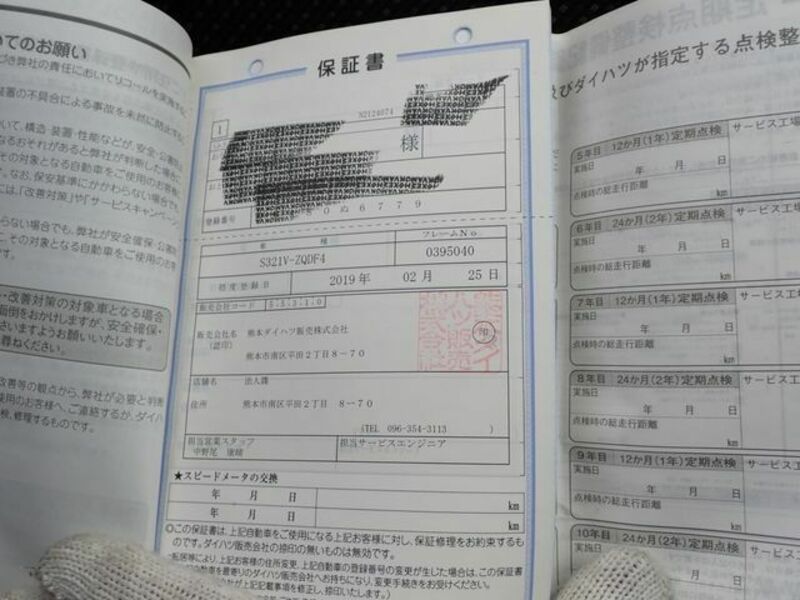 いてのお願い
づき弊社の責任においてリコールを実施す
装置の不具合による事故を未然に防止する
いて、構造・装置・性能などが、安全・公害防
なるおそれがあると弊社が判断した場合に
その対象となる自動車をご使用のお客様
す。なお、保安基準にかかわらない場合でも
には、「改善対策」や「サービスキャンペーン
らない場合でも、弊社が安全確保・公害防
て、その対象となる自動車をご使用のお客
・改善対策の対象車となる場合
面倒をおかけしますが、安全確保・
さいますようお願いいたします。
尋ねください。
改善等の観点から、弊社が必要と判断
使用のお客様へ、ご連絡するか、ダイハ
検、修理するものです。
保証書
N2124074
1
様
登録番号
80ぬ6779
車種
フレームNo.
S321V-ZQDF4
0395040
初度登録日
2019年 02月 25日
販売会社コード 55310
販売会社名 熊本ダイハツ販売株式会社
(認印)
熊本市南区平田2丁目8-70
印
店舗名 法人課
住所 熊本市南区平田2丁目 8-70
(TEL 096-354-3113 )
担当営業スタッフ
中野尾 康晴
担当サービスエンジニア
★スピードメータの交換
年 月 日 km
年 月 日 km
◎この保証書は、上記自動車をご使用になる上記お客様に対し、保証修理をお約束するも
のです。ダイハツ販売会社の捺印の無いものは無効です。
転居等により、上記お客様の住所変更、上記自動車の登録番号の変更が生じた場合は、この保証書
自動車を最寄りのダイハツ販売会社へお持ちになり、変更手続きをお受けください。
会社が上記記載事項を修正し、捺印いたします。)
定期点検整備
及びダイハツが指定する点検整
5年目 12か月(1年)定期点検 サービス工場
実施日 年 月 日
点検時の総走行距離
km
6年目 24か月(2年)定期点検 サービス工場
実施日 年 月 日
点検時の総走行距離
km
7年目 12か月(1年)定期点検 サービス工
実施日 年 月 日
点検時の総走行距離
km
8年目 24か月(2年)定期点検 サービス工
実施日 年 月 日
点検時の総走行距離
km
9年目 12か月(1年)定期点検 サービス
実施日 年 月 日
点検時の総走行距離
km
10年目 24か月(2年)定期点検 サービ
実施日 年 月 日